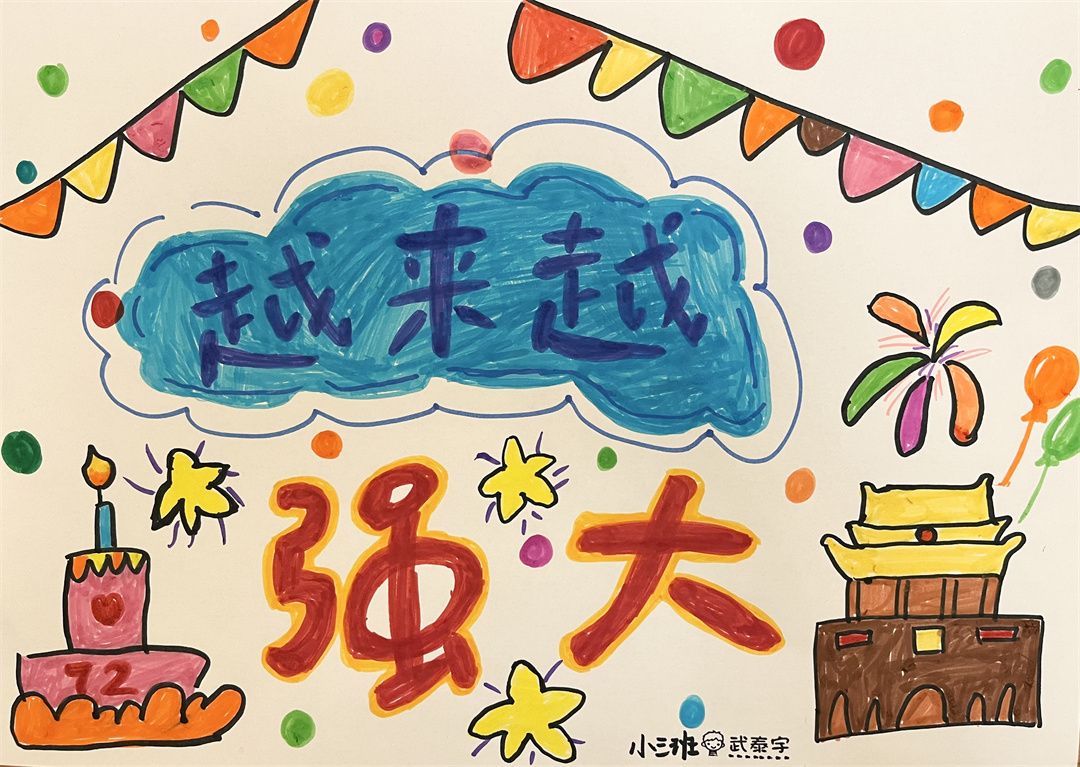 越来越
强大
72
小三班 武泰宇